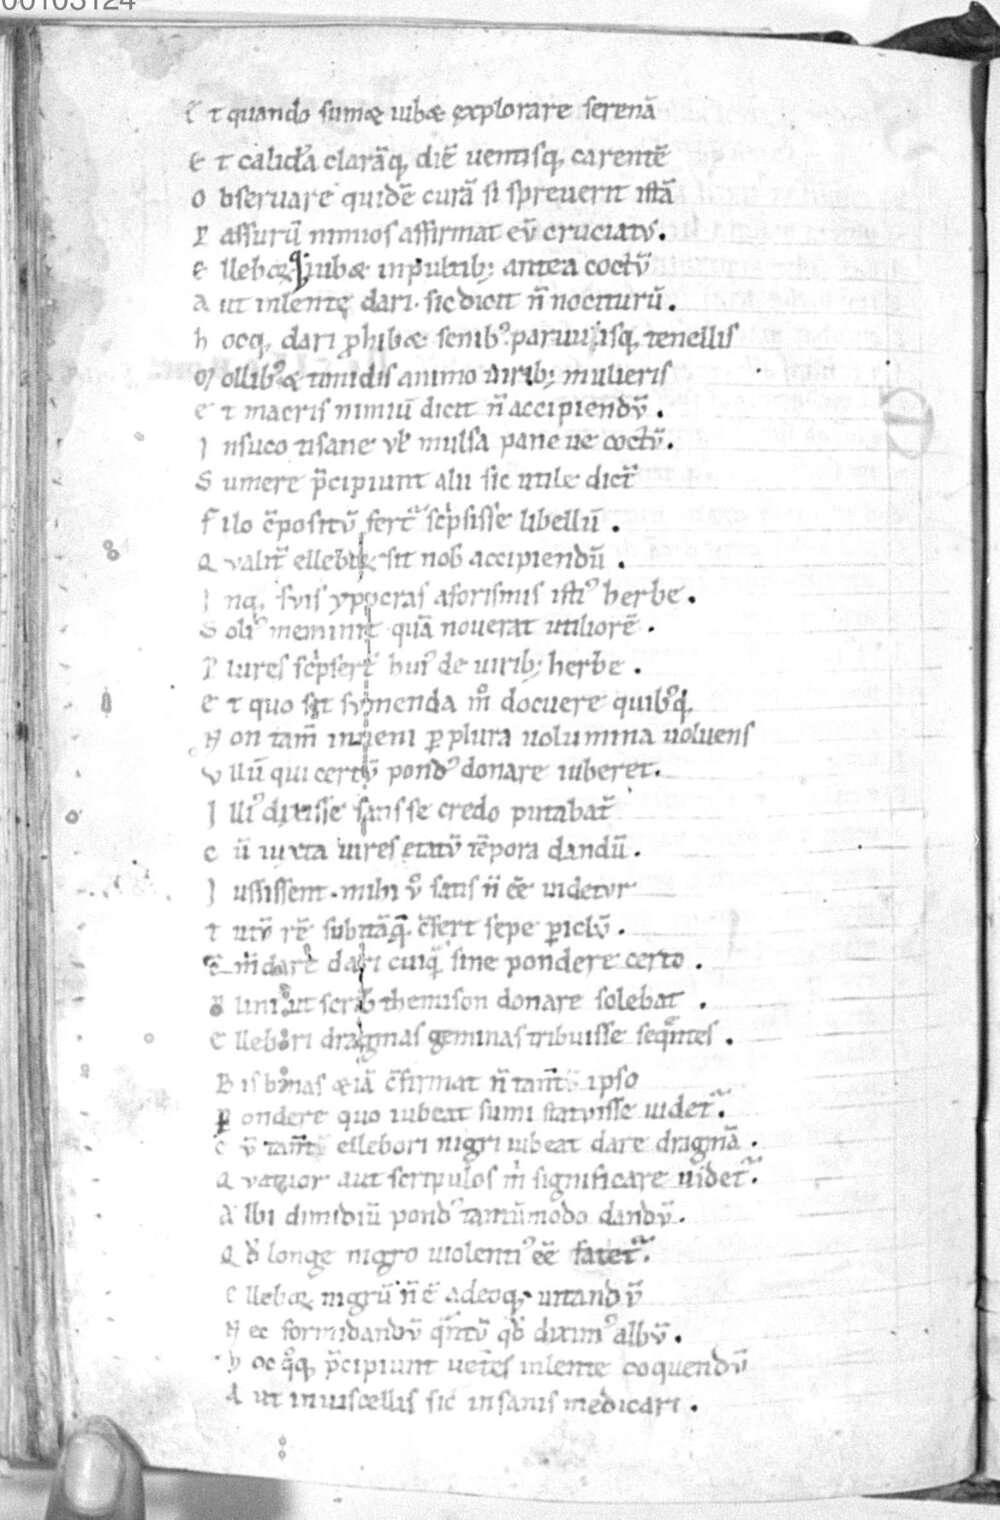 00103124
E t quando sumę iubæ explorare serenā
E t calidā clarāq, diē uentisq, carentē
O bseruare quidē curā si spreuerit istā
P assurū nimios affirmat eū cruciatus.
E llebo iubæ in pultib; antea coctū
A ut inlente dari. sic dicit n̄ nociturū.
h ocq, dari ꝓhibæ senib᾿ paruisq, tenellis
M ollib᾿ & timidis animo uirib; mulieris
E t macris nimiū dicit n̄ accipiendū.
I nsuco tisane ut mulsa pane ue coctū.
S umere p̄cipiunt alii sic utile dict̄
F ilo c̄positū fert᷑ sc̄psisse libellū.
Q ualit̄ ellebor sit nob accipiendū.
I nq, suis ypocras aforismis isti᾿ herbe.
S oli᾿ meminit quā nouerat utiliorē.
P lures sc̄psert hui᾿ de uirib; herbe.
E t quo sit sumenda m̊ docuere quib᾿q,
N on tam̄ inueni ꝑ plura uolumina uoluens
V llū qui certū pond᾿ donare iuberet.
I lli᾿ dixisse satis se credo putabat᷑
C ū iuxta uires etatū tēpora dandū.
I ussissent. mihi ů satis n̄ ēē uidetur
T utū rē subitāq. c̄fert sepe ꝑiclū.
dari cuiq̄ sine pondere certo.
P lini᾿ ut scrib themison donare solebat.
E llebori dragmas geminas tribuisse seq̄ntes.
B is binas & iā c̄firmat n̄ tam̄ ipso
P ondere quo iubeat sumi statuisse uidet᷑.
C ū tam̄ ellebori nigri iubeat dare dragmā.
Q uatuor aut scripulos m̊ significare uidet᷑.
A lbi dimidiū pond᾿ tantūmodo dandū.
Q d̄ longe nigro uiolenti᾿ ēē fatet᷑.
E lleboꝝ nigrū n̄ ē adeoq, uitandū
N ec formidandū q̄ntū qd̄ dixim᾿ albū.
h oc q̊q, p̄cipiunt uet̄es inlente coquendū
A ut in iuscellis sic insanis medicari.